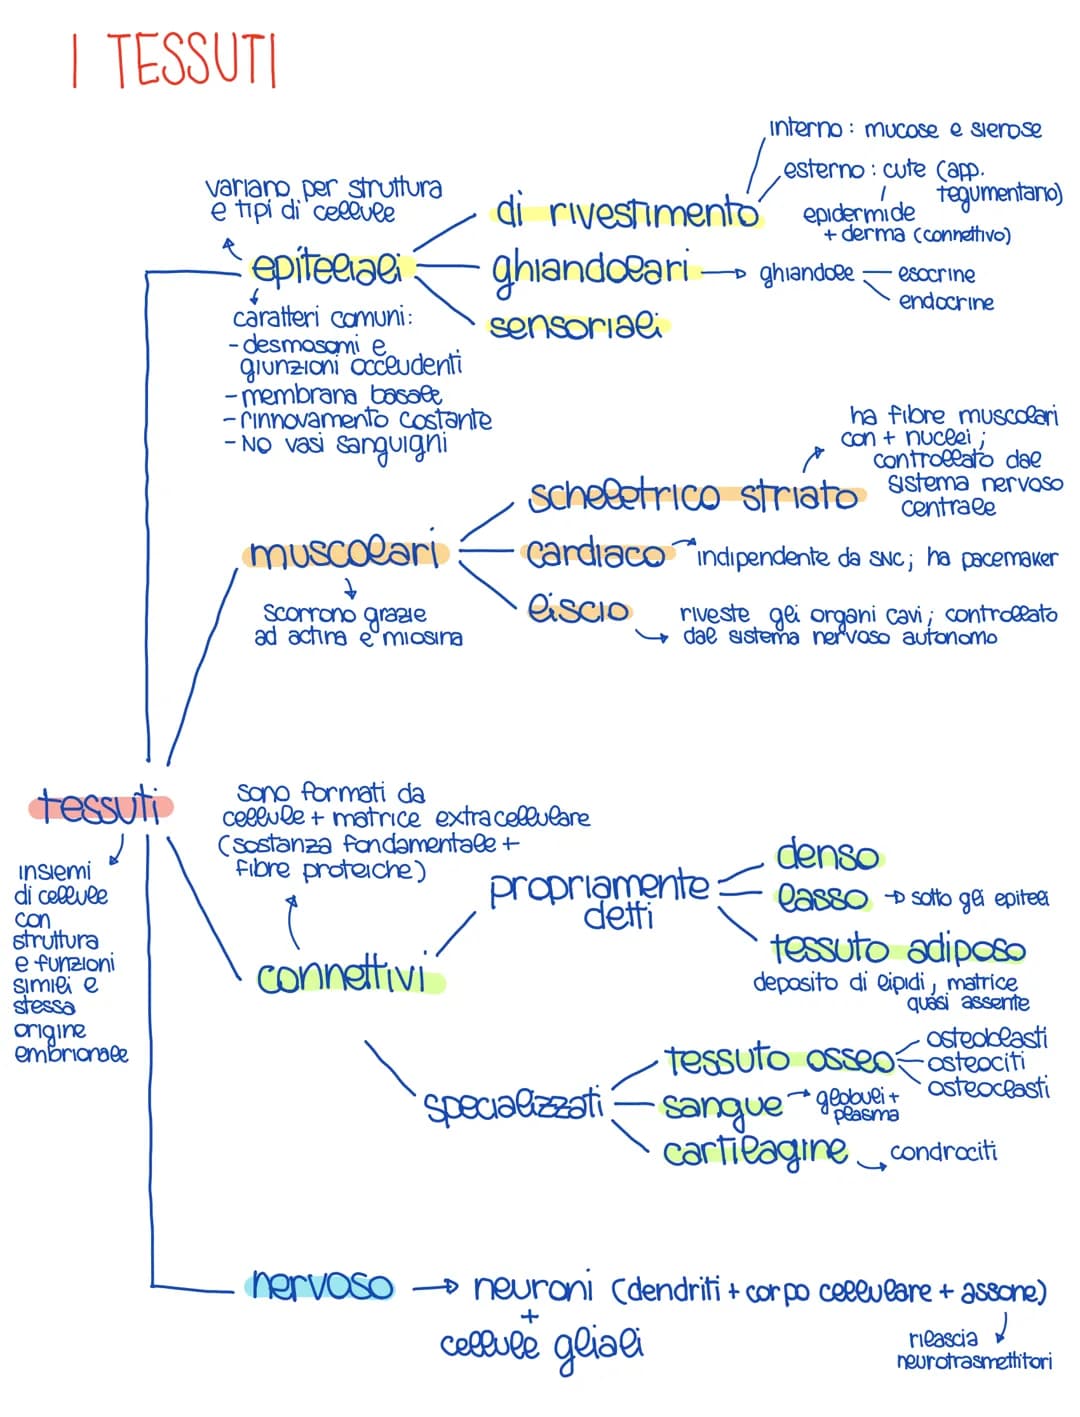 I TESSUTI
interno : mucose e sierose
esterno : cute (app.
tegumentario)
epidermide
+ derma (connettivo)
variano per struttura
e tipi di cellule
di rivestimento
epiteliali
ghiandolari
ghiandole
esocrine
endocrine
sensoriali
caratteri comuni:
- desmosomi e
giunzioni occludenti
- membrana basale
- rinnovamento costante
- NO vasi sanguigni
ha fibre muscolari
con + nuclei ;
controllato dal
sistema nervoso
centrale
scheletrico striato
muscolari
cardiaco
indipendente da SNC; ha pacemaker
liscio
riveste gli organi cavi ; controllato
dal sistema nervoso autonomo
Scorrono grazie
ad actina e miosina
tessuti
insiemi
di cellule
con
struttura
e funzioni
simili e
stessa
origine
embrionale
sono formati da
cellule + matrice extracellulare
(sostanza fondamentale +
fibre proteiche)
connettivi
propriamente
detti
denso
lasso → sotto gli epiteli
tessuto adiposo
deposito di lipidi, matrice
quasi assente
specializzati
tessuto osseo
osteoblasti
osteociti
osteoclasti
sangue
globuli +
plasma
cartilagine
condrociti
nervoso → neuroni (dendriti + corpo cellulare + assone)
+
cellule gliali
rilascia
neurotrasmettitori